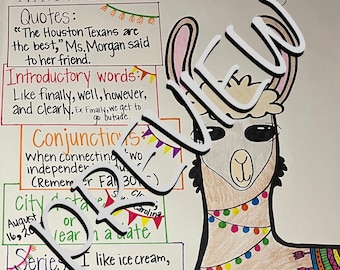 Quotes:
"The Houston Texans are
the best," Ms. Morgan said
to her friend.
Introductory words:
Like finally, well, however,
and clearly. Ex Finally, we get to
go outside.
Conjunctions:
when connecting two
independent
(Remember Fan
City
or
August
16, 20
Year in a date
Carolina
Series: I like ice cream,
PREVIEW